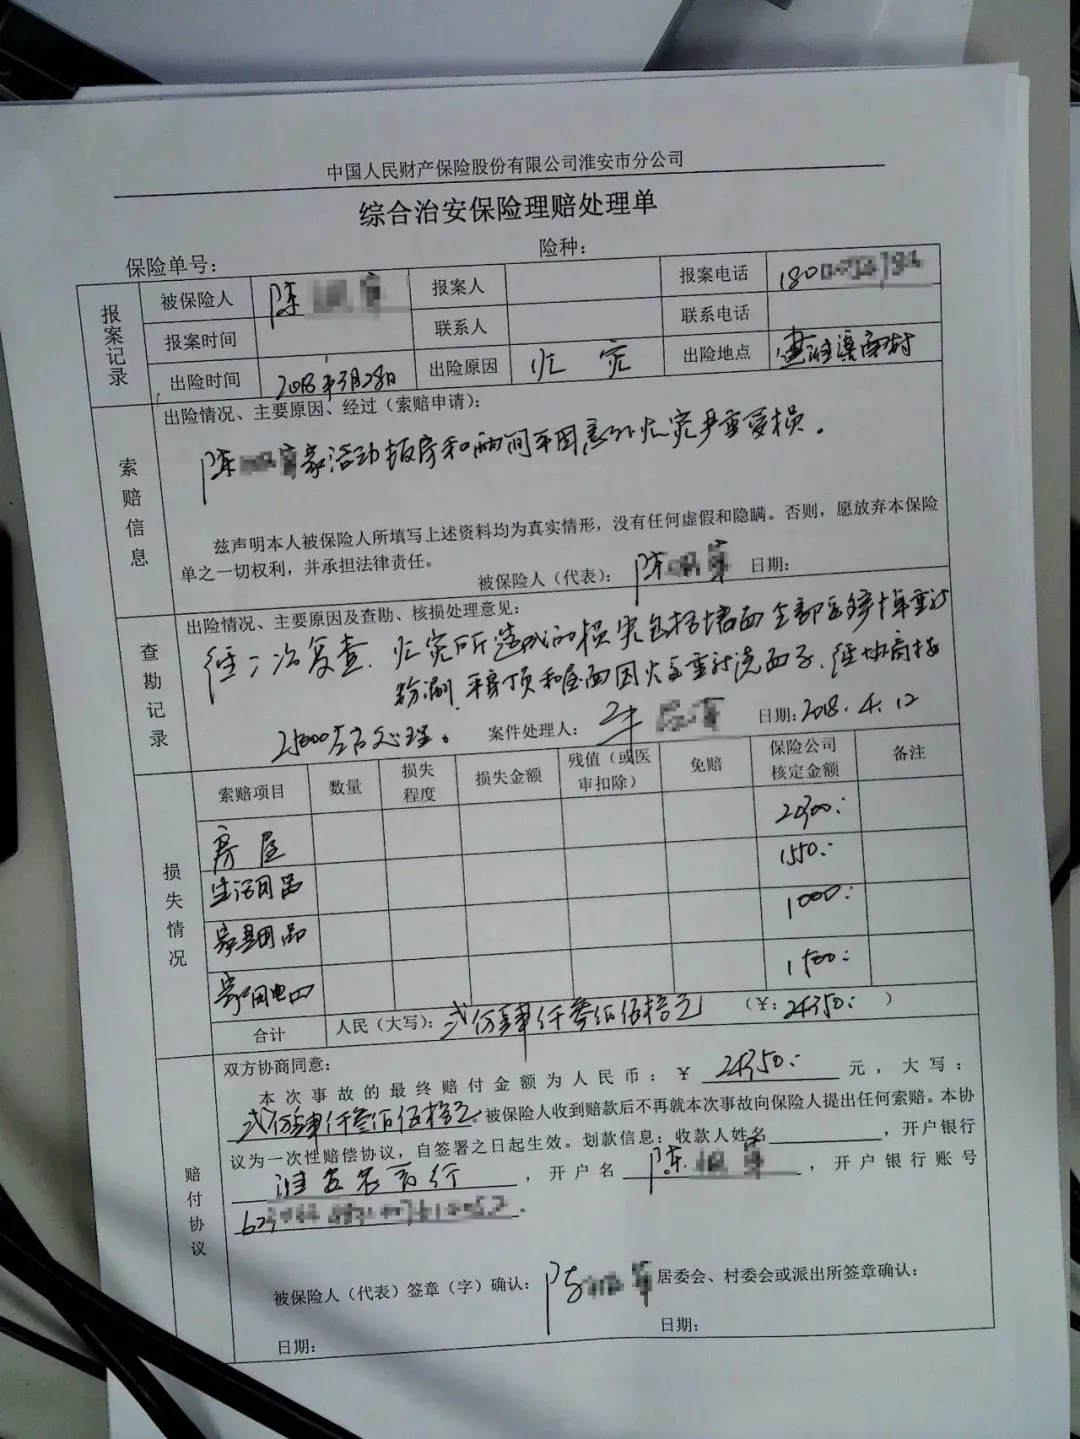 中国人民财产保险股份有限公司淮安市分公司
综合治安保险理赔处理单
保险单号： 险种：
报案记录
被保险人 陈 报案人 报案电话 180
报案时间 联系人 联系电话
出险时间 2018年3月28日 出险原因 火 灾 出险地点
索赔信息
出险情况、主要原因、经过（索赔申请）：
陈 家活动板房和两间平因意外火灾严重受损。
兹声明本人被保险人所填写上述资料均为真实情形，没有任何虚假和隐瞒。否则，愿放弃本保险
单之一切权利，并承担法律责任。
被保险人（代表）： 陈 日期：
查勘记录
出险情况、主要原因及查勘、核损处理意见：
经二次复查，火灾所造成的损失包括墙面全部 重新
粉刷，平房顶和屋面因火 重新 ，经协商按
25000 处理。 案件处理人： 日期：2018.4.12
损失情况
索赔项目 数量 损失程度 损失金额 残值（或医审扣除） 免赔 保险公司核定金额 备注
房屋 20300：
生活用品 1550：
家具用品 1000：
家用电 1500：
合计 人民（大写）：贰仟肆仟叁佰伍拾元 （¥：24350：）
赔付协议
双方协商同意：
本次事故的最终赔付金额为人民币：¥ 24350： 元，大写：
贰万肆仟叁佰伍拾元。被保险人收到赔款后不再就本次事故向保险人提出任何索赔。本协
议为一次性赔偿协议，自签署之日起生效。划款信息：收款人姓名 ，开户银行
淮安农商行 ，开户名 陈 ，开户银行账号
62 。
被保险人（代表）签章（字）确认： 陈 居委会、村委会或派出所签章确认：
日期： 日期：